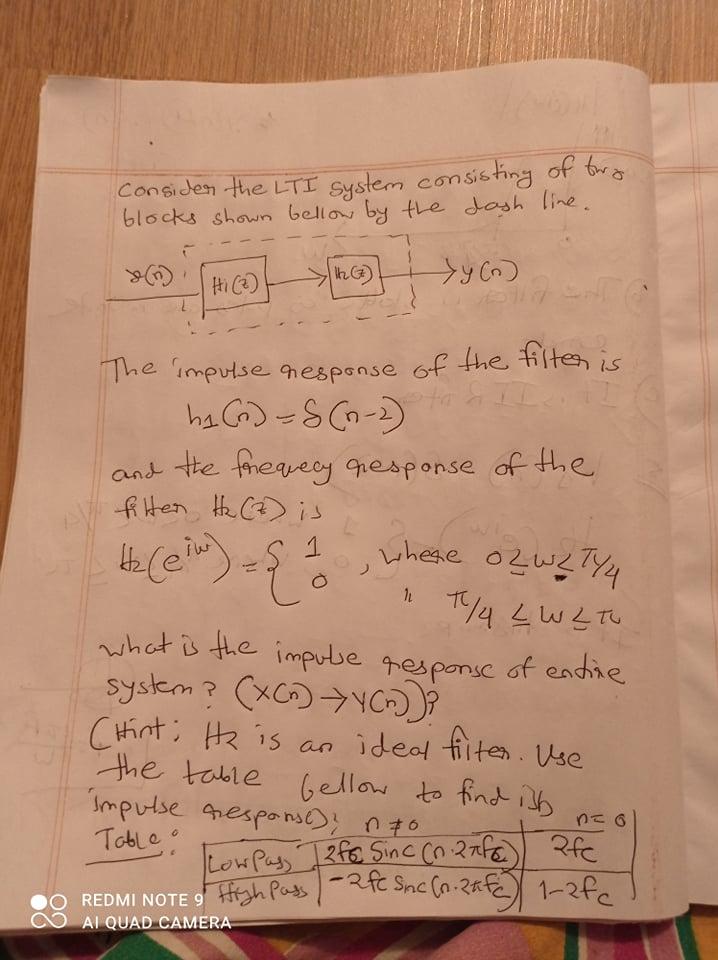 Consider the LTI system consisting of two
blocks shown bellow by the dash line.
x(n) H1(z) H2(z) y(n)
The impulse response of the filter is
h1(n) = δ(n-2)
and the freqvecy response of the
filter H2(z) is
H2(e^iw) = { 1 , where 0 ≤ w ≤ π/4
0 " π/4 ≤ w ≤ π
what is the impulse response of entire
system? (X(n) → Y(n))?
(Hint; H2 is an ideal filter. Use
the table bellow to find its
impulse response);
Table: n ≠ 0 n = 0
Low Pass 2fc Sinc (n.2πfc) 2fc
High Pass -2fc Sinc (n.2πfc) 1-2fc
REDMI NOTE 9
AI QUAD CAMERA